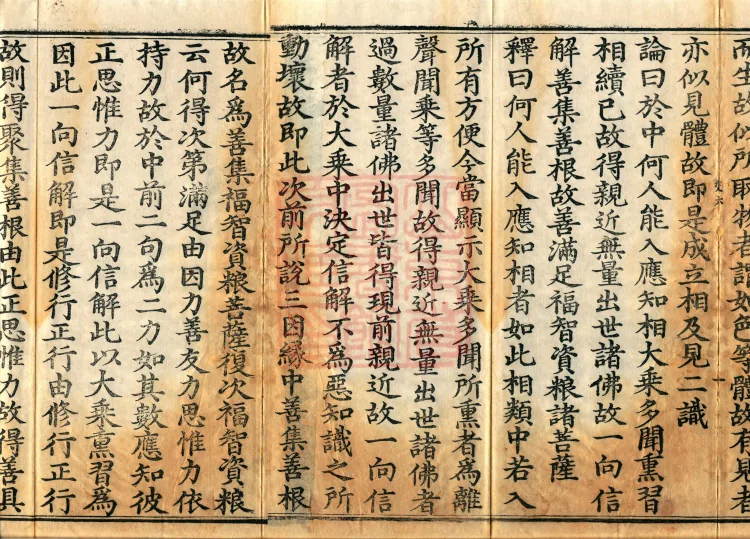 而生故似所取者謂如色等體故有見者
亦似見體故即是成立相及見二識
論曰於中何人能入應知相大乘多聞熏習
相續已故得親近無量出世諸佛故一向信
解善集善根故善滿足福智資粮諸菩薩
釋曰何人能入應知相者如此相類中若入
所有方便今當顯示大乘多聞所熏者爲離
聲聞乘等多聞故得親近無量出世諸佛者
過數量諸佛出世皆得現前親近故一向信
解者於大乘中決定信解不爲惡知識之所
動壞故即此次前所說三因緣中善集善根
故名爲善集福智資粮菩薩復次福智資粮
云何得次第滿足由因力善友力思惟力依
持力故於中前二句爲二力如其數應知彼
正思惟力即是一向信解此以大乘熏習爲
因此一向信解即是修行正行由修行正行
故則得聚集善根由此正思惟力故得善具